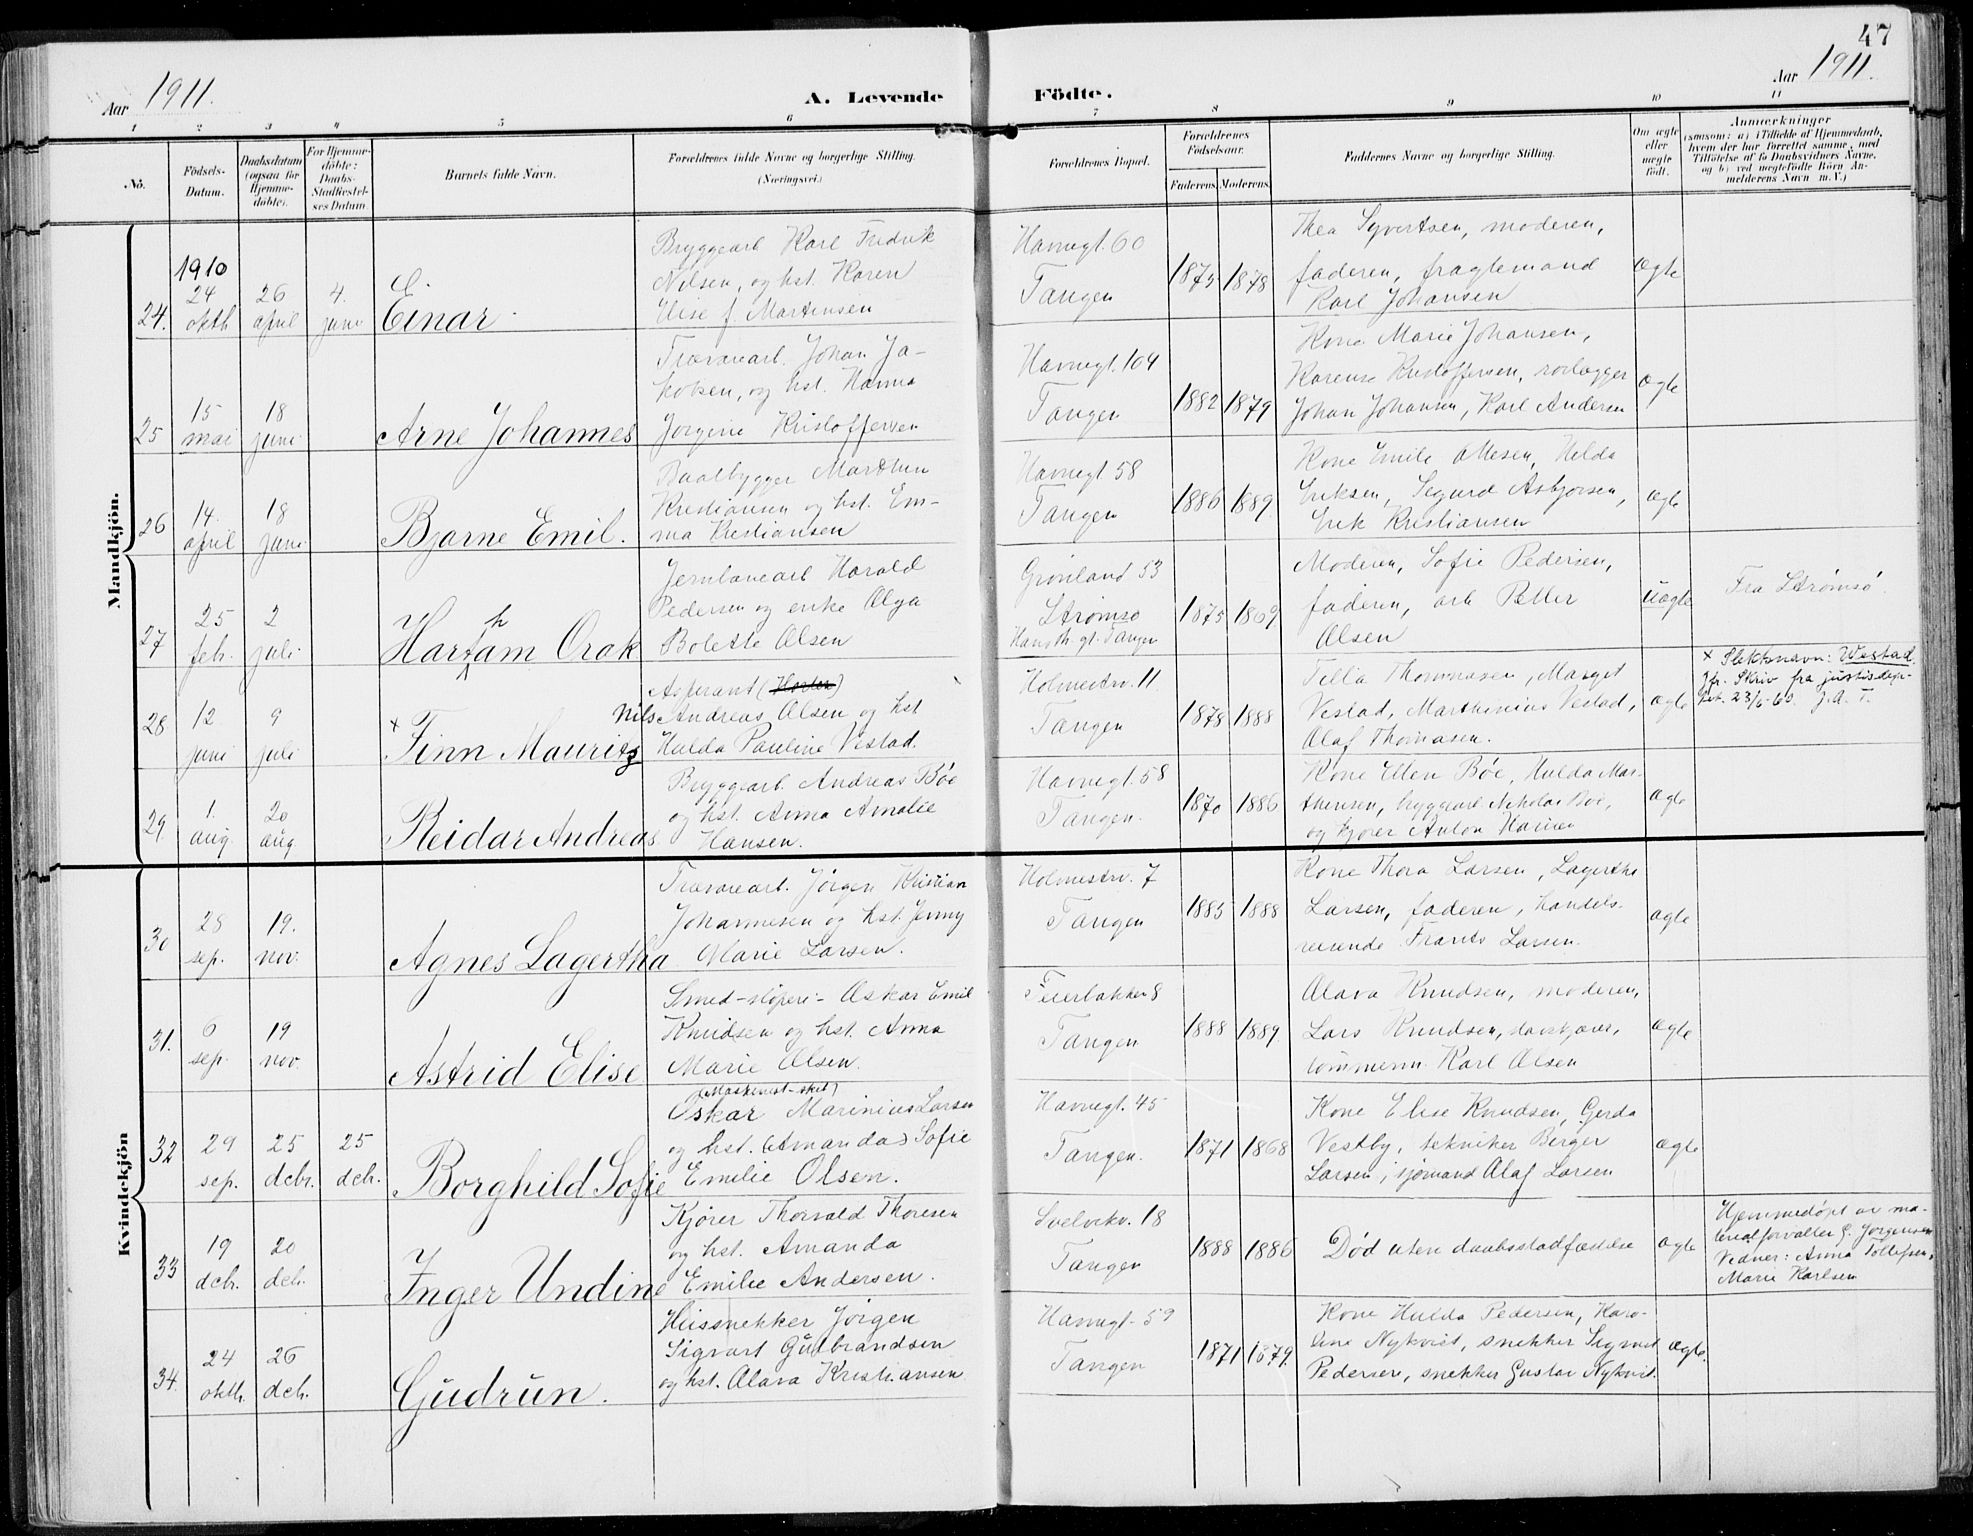 47
Aar 1911.
A. Levende Födte.
Aar 1911.
1 2 3 4 5 6 7 8 9 10 11
No.
Födsels-
Datum.
Daabsdatum
(ogsaa for
Hjemme-
döbte).
For Hjemme-
döbte:
Daabs-
Stadfæstel-
ses Datum.
Barnets fulde Navn.
Forældrenes fulde Navne og borgerlige Stilling.
(Næringsvei.)
Forældrenes Bopæl.
Forældrenes
Födselsaar.
Faderens. Moderens.
Faddernes Navne og borgerlige Stilling.
Om ægte
eller
uægte
födt.
Anmærkninger
(saasom: a) i Tilfælde af Hjemmedaab,
hvem der har forrettet samme, med
Tilföielse af to Daabsvidners Navne,
og b) ved uægtefödte Börn An-
melderens Navn m. V.)
Mandkjön.
24.
1910
24
oktb
26
april
4.
juni
Einar
Bryggearb Karl Fredrik
Nilsen, og hst. Karen
Elise f. Martinsen
Havnegt. 60
Tangen
1875 1878
Thea Syvertsen, moderen,
faderen, fragtemand
Karl Johansen
Ægte
25
15
mai
18
juni
Arne Johannes
Trævarearb. Johan Ja-
kobsen, og hst. Hanna
Jørgine Kristoffersen
Havnegt. 104
Tangen
1882 1879
Kone Marie Johansen,
Karense Kristoffersen, rørlægger
Johan Johansen, Karl Andersen
Ægte
26
14.
april
18
juni
Bjarne Emil.
Baatbygger Marthin
Kristiansen og hst. Em-
ma Kristiansen
Havnegt 58
Tangen
1886 1889
Kone Emile Ottesen, Hilda
Eriksen, Sigurd Asbjørsen,
Erik Kristiansen
Ægte
27
25
feb.
2
juli
Hartham Orak
Jernbanearb Harald
Pedersen og enke Olga
Bolette Olsen
Grønland 53
Strømsø
Havnegt. Tangen
1875 1869
Moderen, Sofie Pedersen,
faderen, arb Petter
Olsen
Uægte
Fra Strømsø.
28
12.
juni
9
juli
× Finn Mauritz
Aspirant
Nils Andreas Olsen og hst
Hulda Pauline Vestad.
Holmestrv. 11
Tangen
1878 1888
Tilla Thommasen, Marget
Vestad, Marthinius Vestad,
Olaf Thomasen.
Ægte
× Slektsnavn: Westad.
Jfr. Skriv fra justisdep-
tet. 23/6-60. J. A. T.
29.
1.
aug.
20
aug
Reidar Andreas
Bryggearb. Andreas Bøe
og hst. Anna Amalie
Hansen.
Havnegt. 58
Tangen.
1870 1886
Kone Ellen Bøe, Hulda Mar-
thinsen, bryggearb Nikolai Bøe,
og kjører Anton Hansen
Ægte
Kvindekjön
30
28
sep.
19.
nov.
Agnes Lagertha
Trævarearb. Jørgen Kristian
Johannesen og hst. Jenny
Marie Larsen.
Holmestrv. 7
Tangen
1885 1888
Kone Thora Larsen, Lagertha
Larsen, faderen, handels-
reisende Frants Larsen.
Ægte
31.
6
sep.
19
nov.
Astrid Elise
Smed-støperi- Oskar Emil
Knudsen og hst. Anna
Marie Olsen.
Feierbakken 8
Tangen
1888 1889
Olava Knudsen, moderen,
Lars Knudsen,
tømmerm. Karl Olsen
Ægte
32
29
sep.
25
debr.
25
deb.
Borghild Sofie
Oskar Marinius Larsen
og hst. (Amanda) Sofie
Emilie Olsen.
Havnegt. 45
Tangen.
1871 1868
Kone Elise Knudsen, Gerda
Vestby, tekniker Birger
Larsen, sjømand Olaf Larsen
Ægte
33
19
deb.
20
deb.
Inger Undine
Kjører Thorvald Thoresen
og hst. Amanda
Emilie Andersen.
Svelvikv. 18
Tangen
1888 1886
Død uten daabsstadfæstelse
Ægte
Hjemmedøpt av ma-
terialforvalter G. Jørgensen
Vidner: Anna Tollefsen,
Marie Karlsen
34.
24
oktb.
26
deb.
Gudrun.
Hussnekker Jørgen
Sigvart Gulbrandsen
og hst. Olava Kristiansen
Havnegt. 59
Tangen
1871 1879.
Kone Hulda Pedersen, Karo-
line Nykvist, snekker Sigvart
Pedersen, snekker Gustav Nykvist.
Ægte.